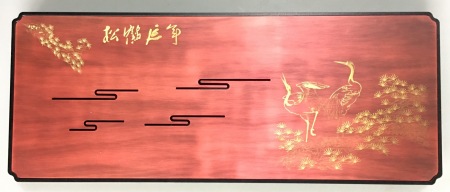 松鹤延年